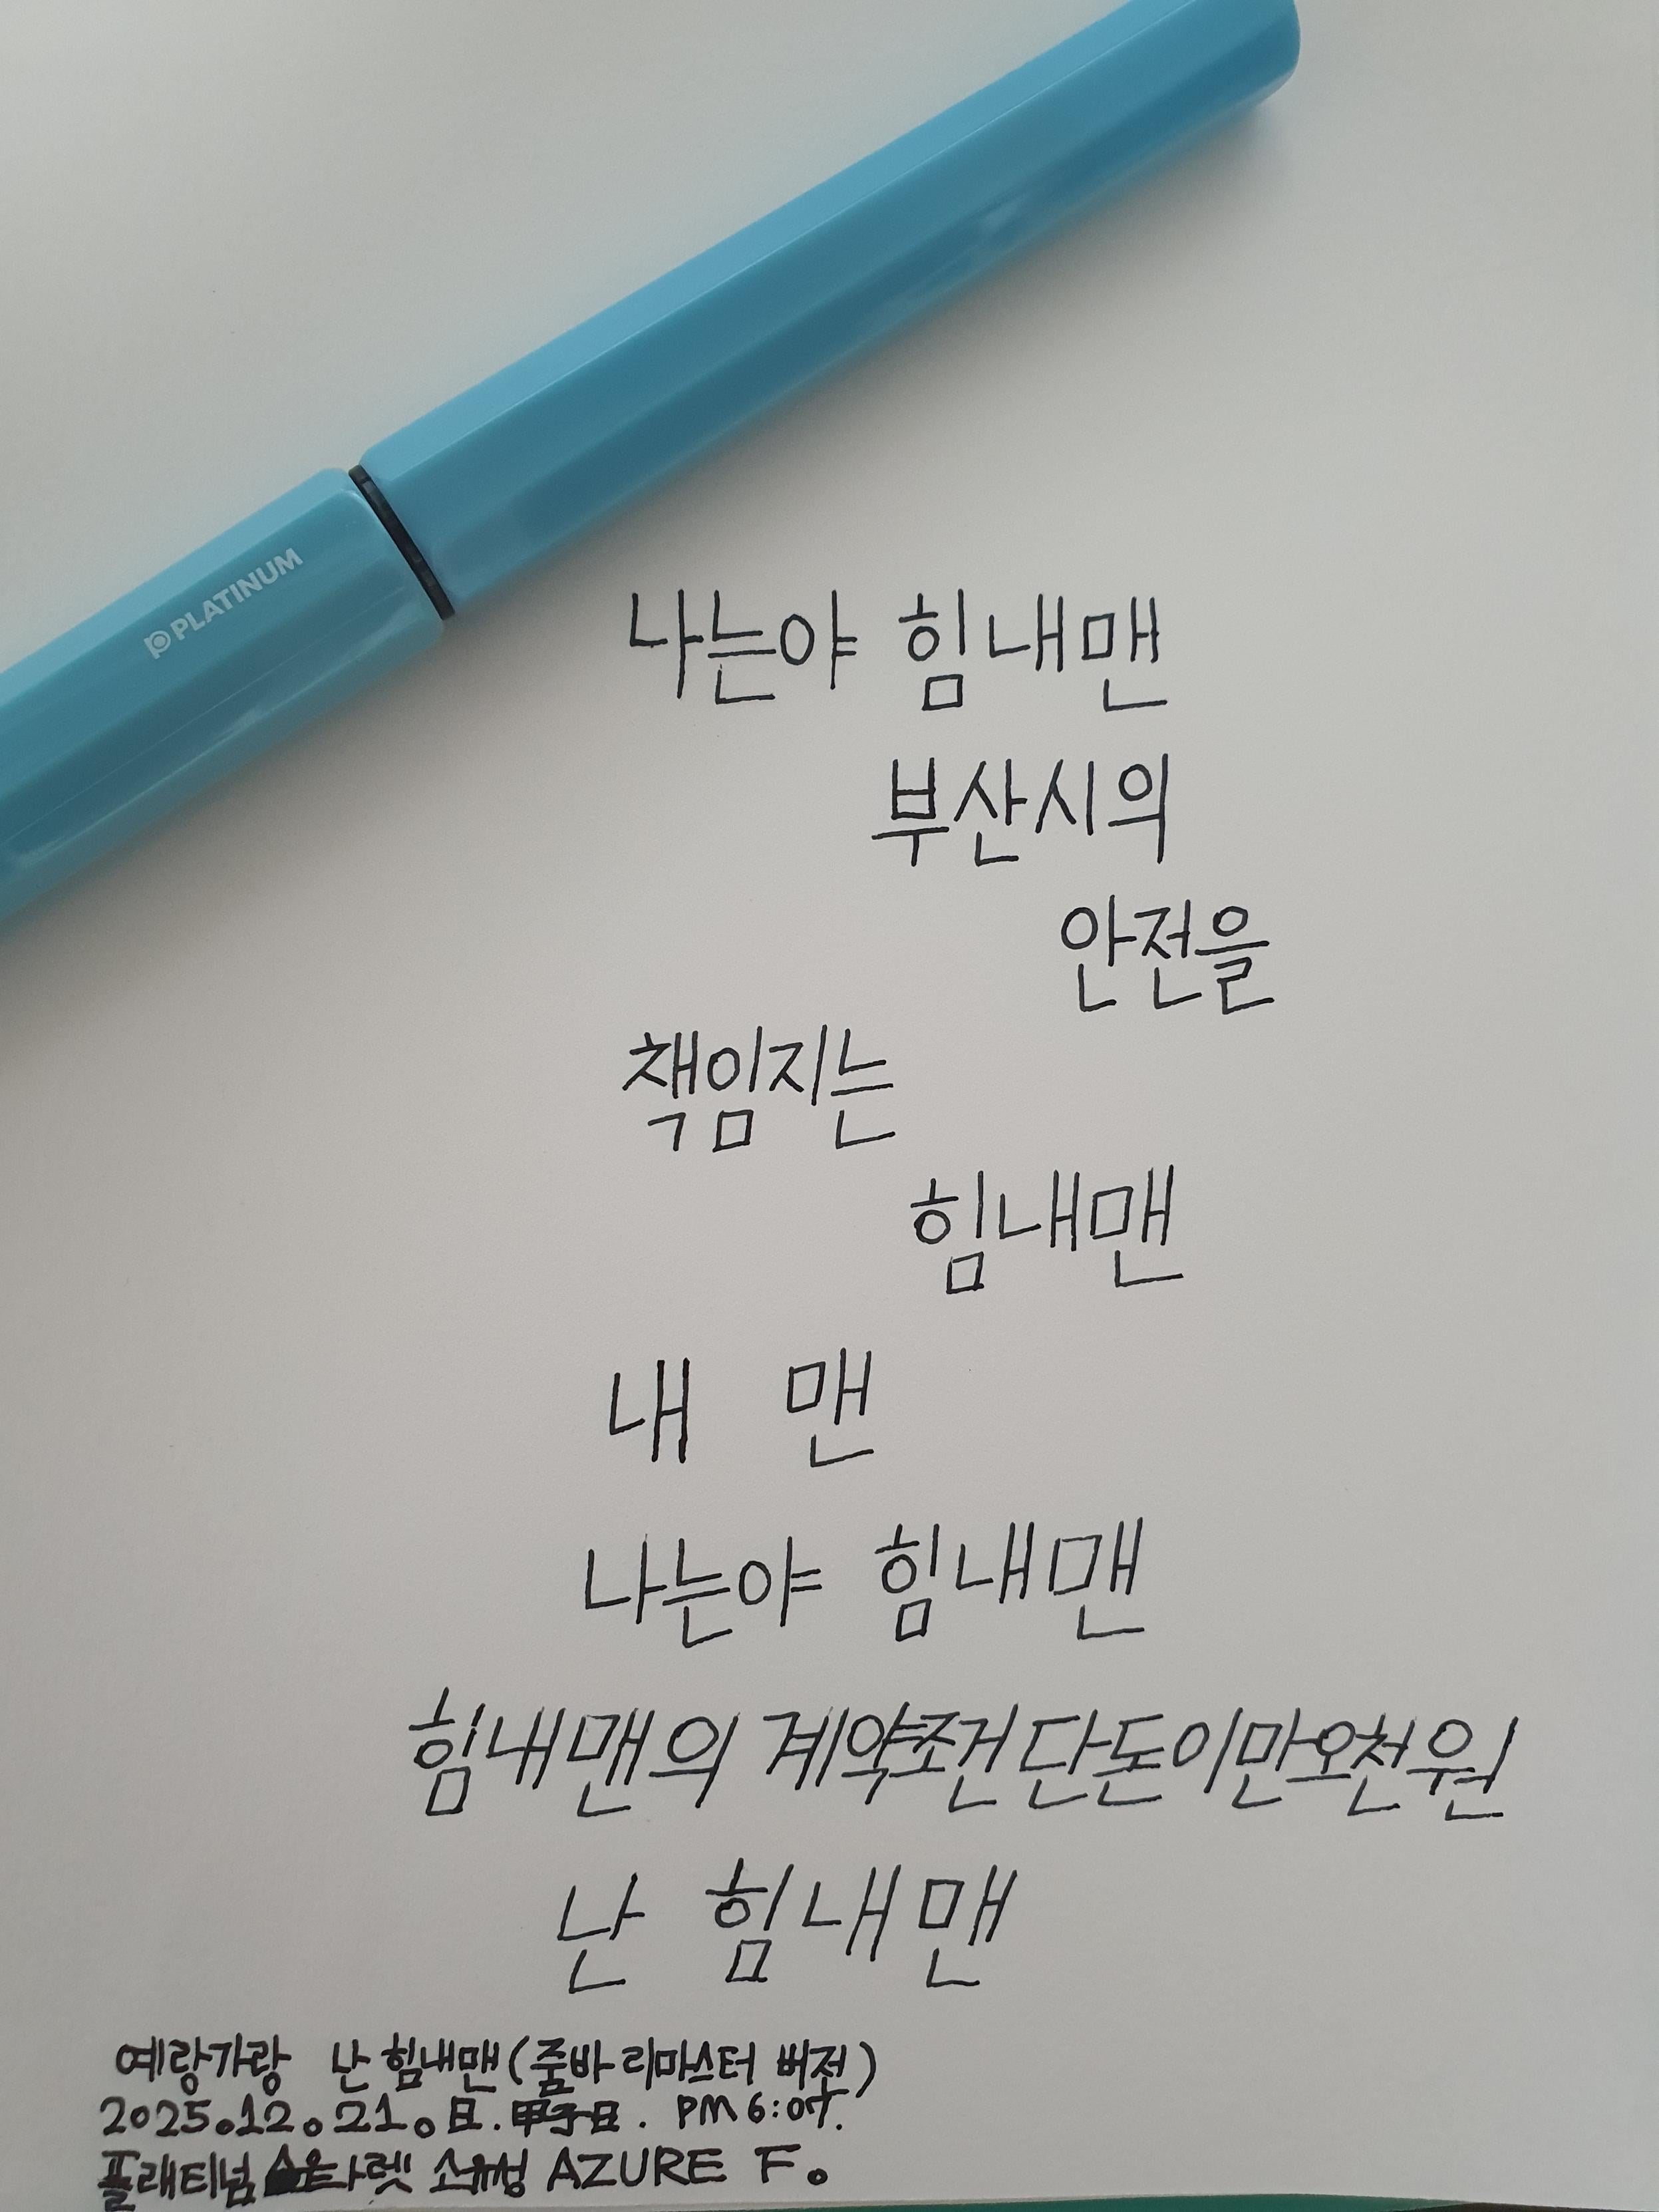 PLATINUM
나는야 힘내맨
부산시의
안전을
책임지는
힘내맨
내 맨
나는야 힘내맨
힘내맨의 계약조건 단돈이만오천원
난 힘내맨
예랑가랑 난 힘내맨(줌바 리마스터 버전)
2025.12.21.日.甲子日. PM 6:07.
플래티넘 AZURE F.